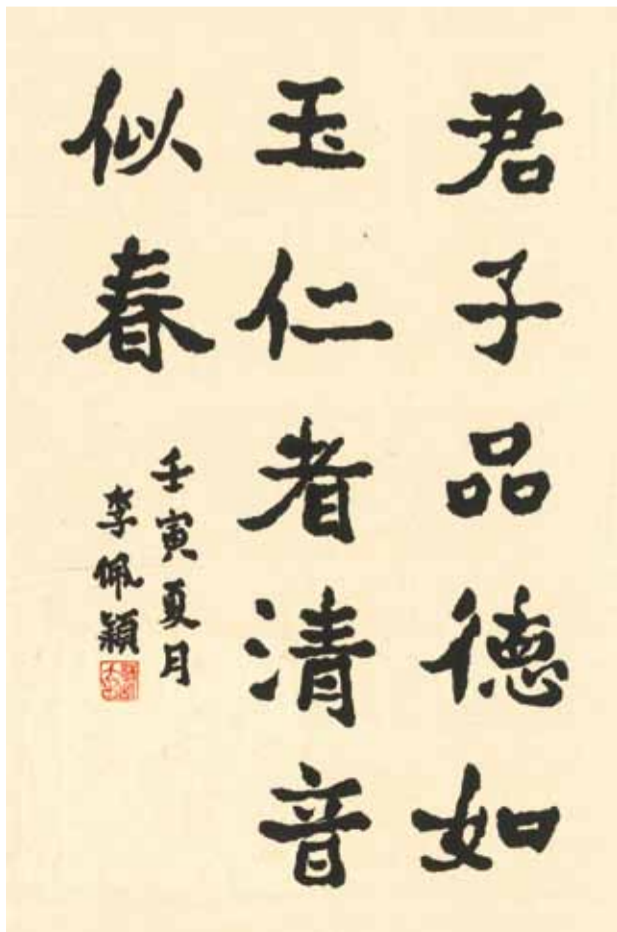 君子品德如
玉仁者清音
似春
壬寅夏月
李佩穎